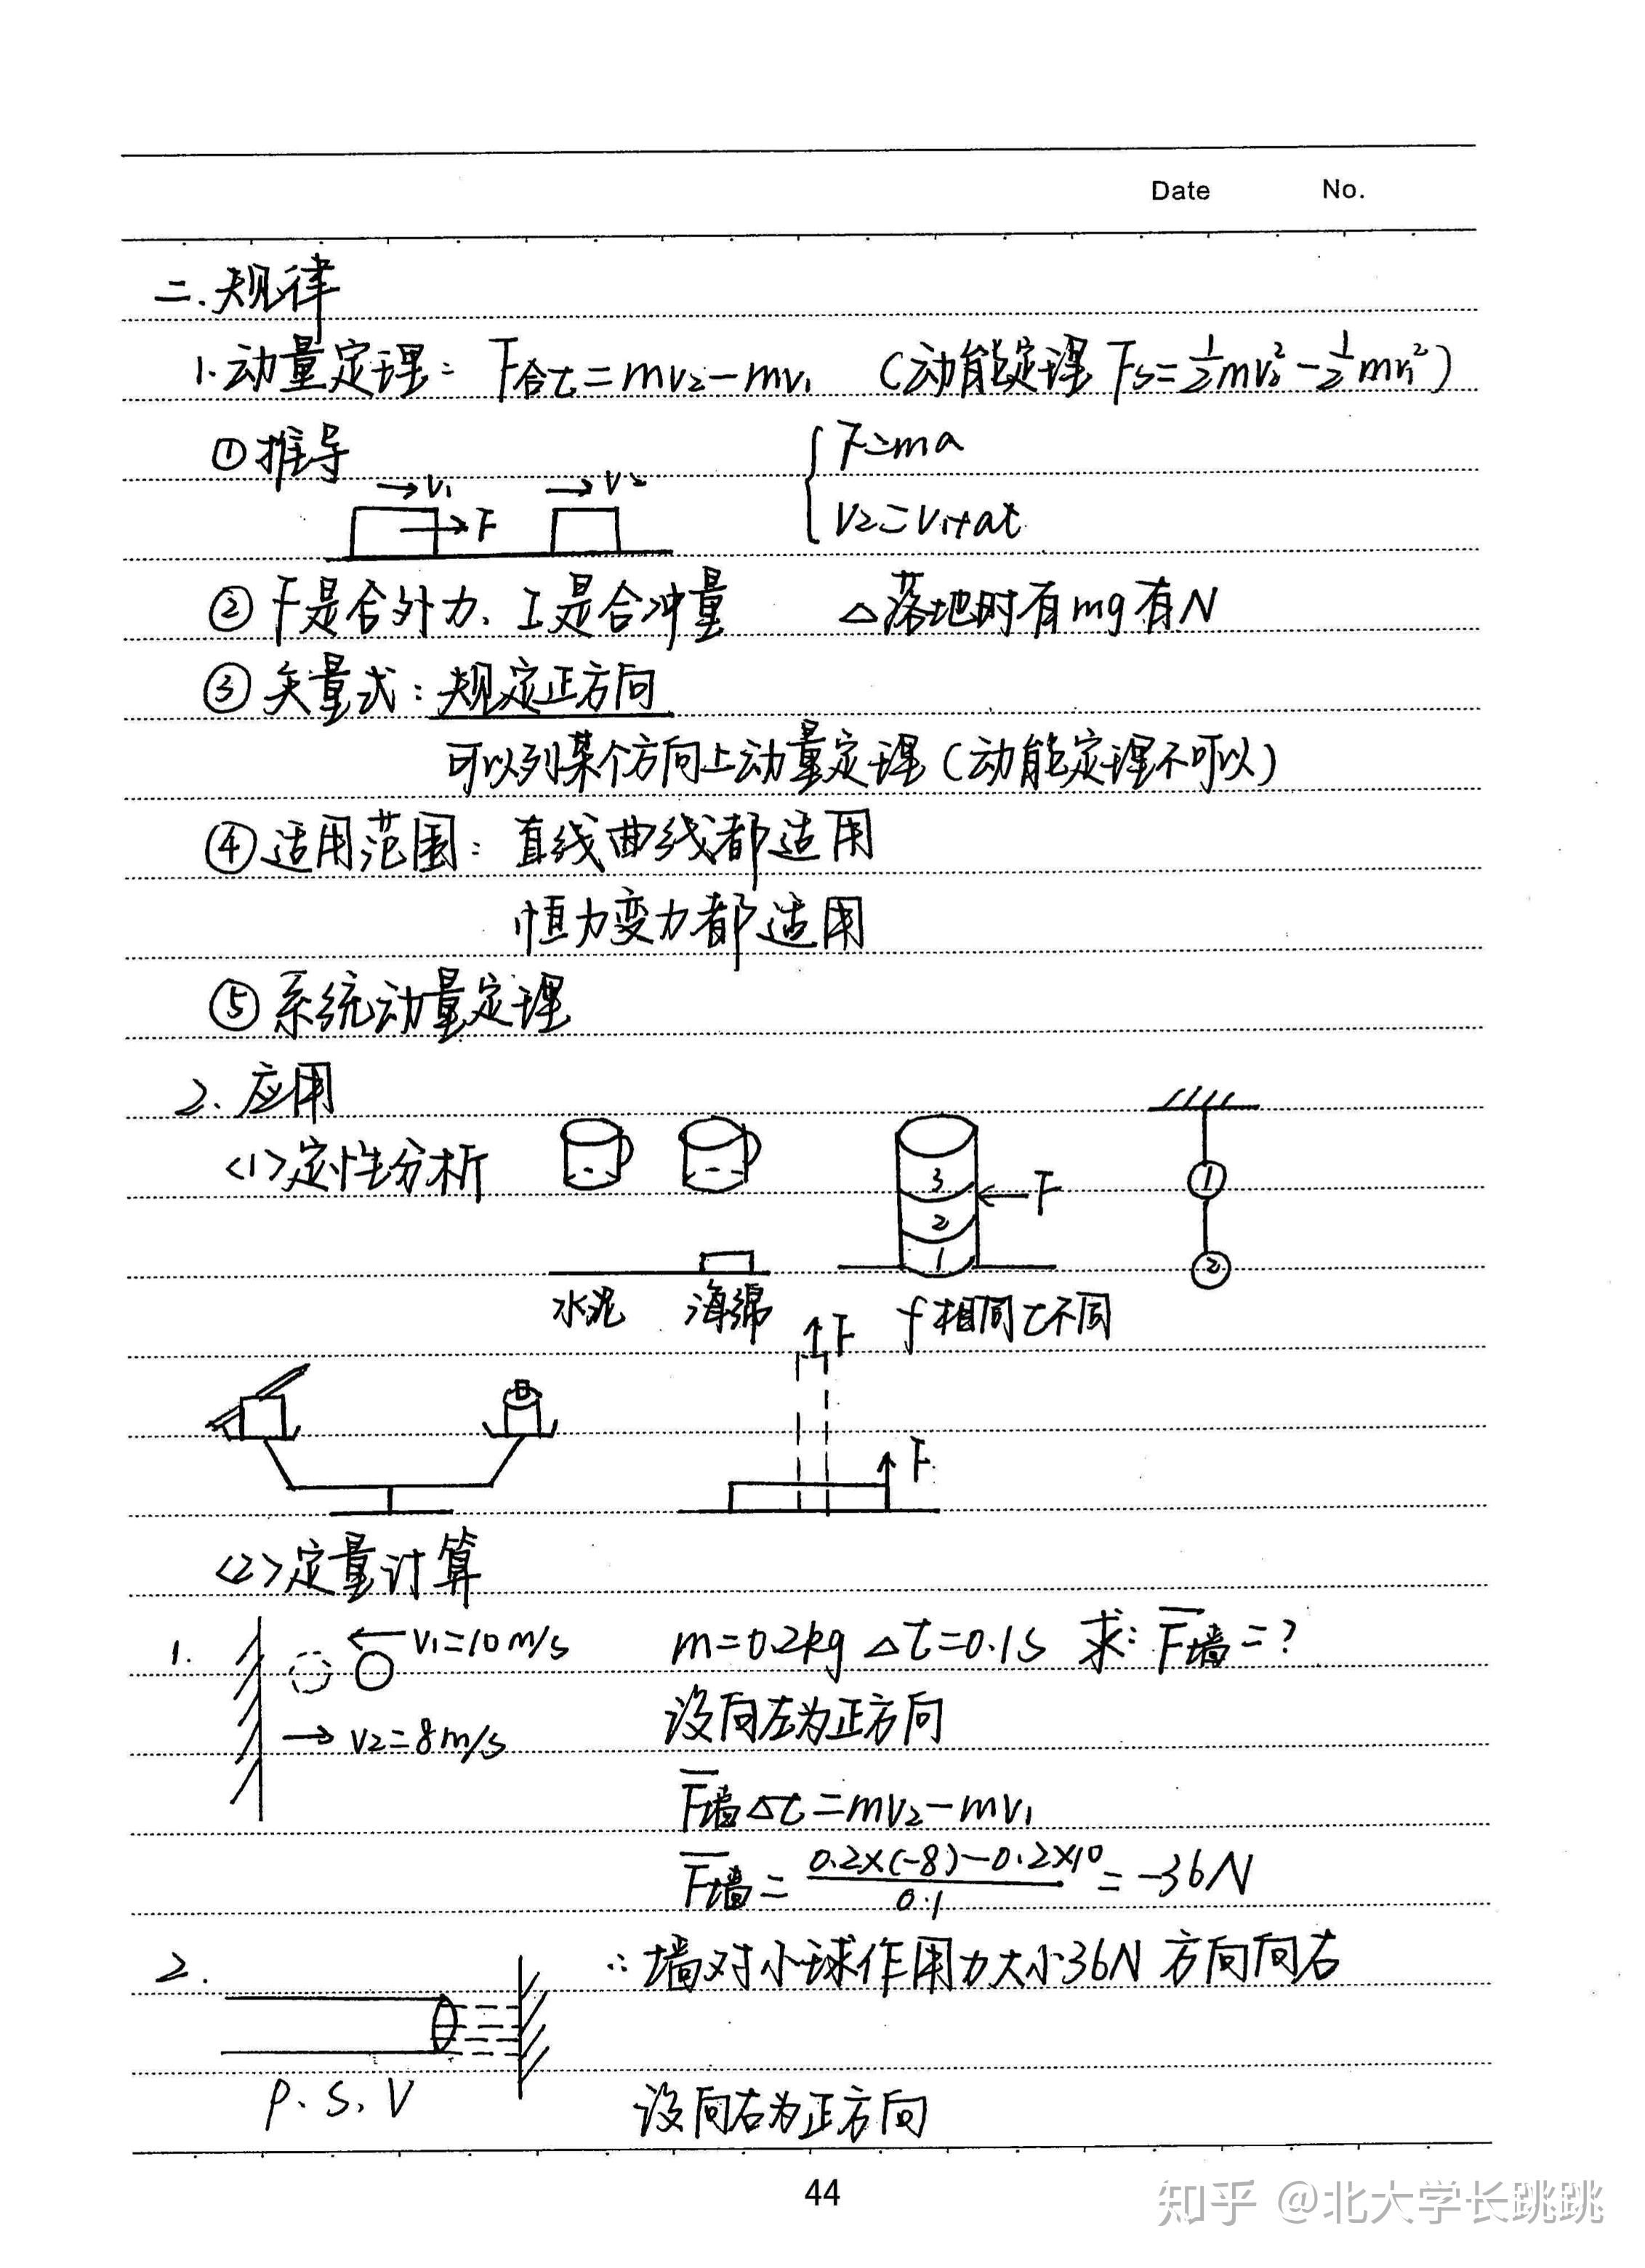 Date No.
二.规律
1.动量定理: F合t=mv₂-mv₁ (动能定理 Fs=½mv₂²-½mv₁²)
①推导
→V₁ →V₂ F
{F=ma
V₂=V₁+at
②F是合外力、I是合冲量 △落地时有mg有N
③矢量式:规定正方向
可以列某个方向上动量定理(动能定理不可以)
④适用范围:直线曲线都适用
恒力变力都适用
⑤系统动量定理
2.应用
<1>定性分析
3 2 1 F
① ②
水泥 海绵 f相同t不同
F
F
<2>定量计算
1. V₁=10m/s m=0.2kg △t=0.1s 求:F̅墙=?
→V₂=8m/s 设向左为正方向
F̅墙△t=mv₂-mv₁
F̅墙=(0.2×(-8)-0.2×10)/0.1=-36N
∴墙对小球作用力大小36N 方向向右
2.
ρ、S、V 设向右为正方向
44
知乎 @北大学长跳跳